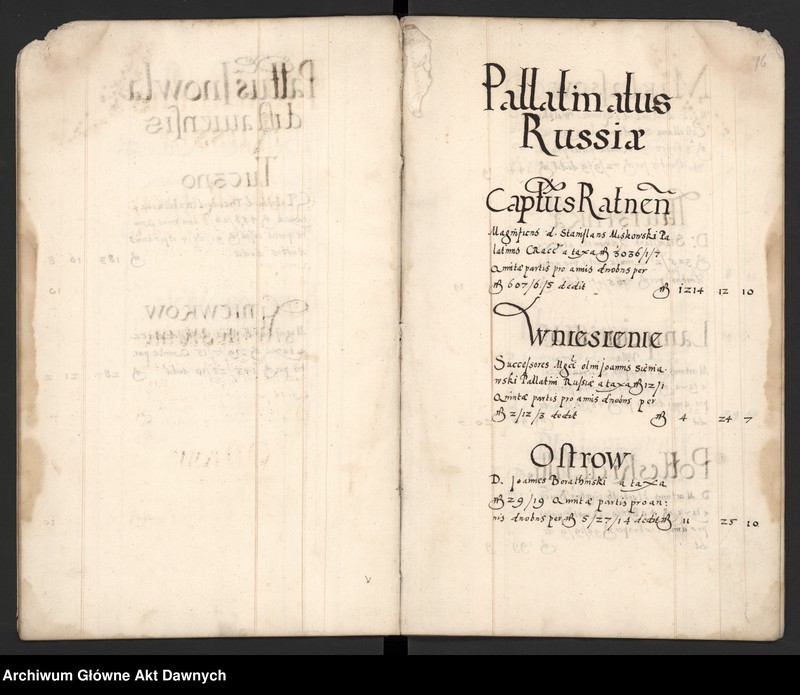 76
Pallatinatus
Russiæ
Captus Ratnen
Magnificus d. Stanislaus Miskowski Pa
latinus Cracc a taxa 3036/1/7
Quintæ partis pro annis duobus per
607/6/5 dedit 1214 12 10
Wniesienie
Successores Mgci olim Joannis Sienia
wski Pallatini Russiæ a taxa 12/1
Quintæ partis pro annis duobus per
2/12/3 dedit 4 24 7
Ostrow
D. Joannes Borathinski a taxa
29/19 Quintæ partis pro an:
nis duobus per 5/27/14 dedit 11 25 10
Archiwum Główne Akt Dawnych